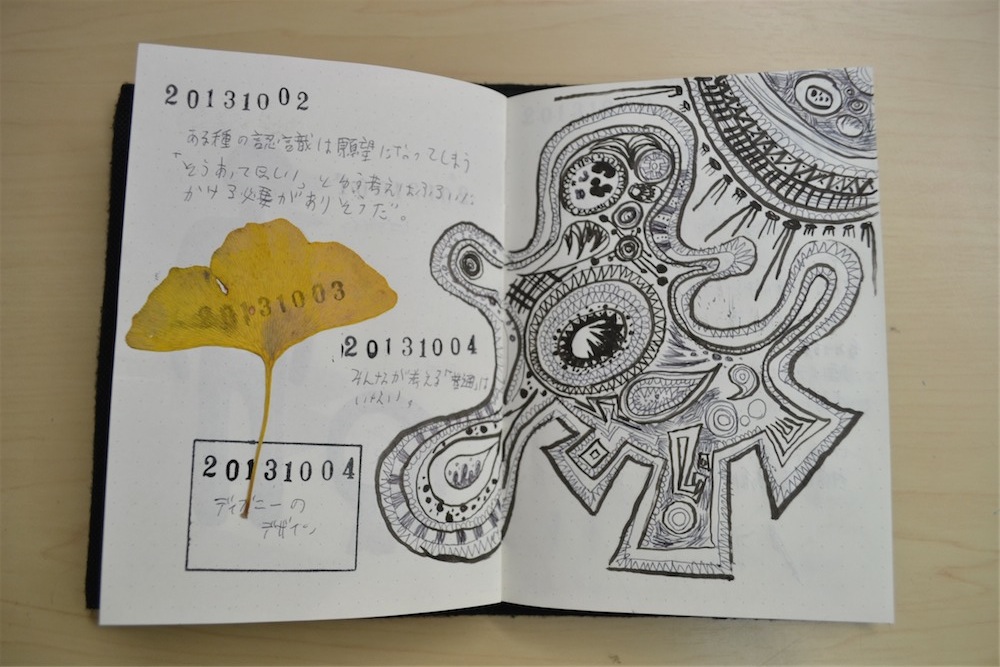 20131002
ある種の認識は願望になってしまう
「そうあってほしい」と 考えはふるいに
かける必要がありそうだ。
20131003
20131004
みんなが考える「普通」は
20131004
ディズニーの
デザイン